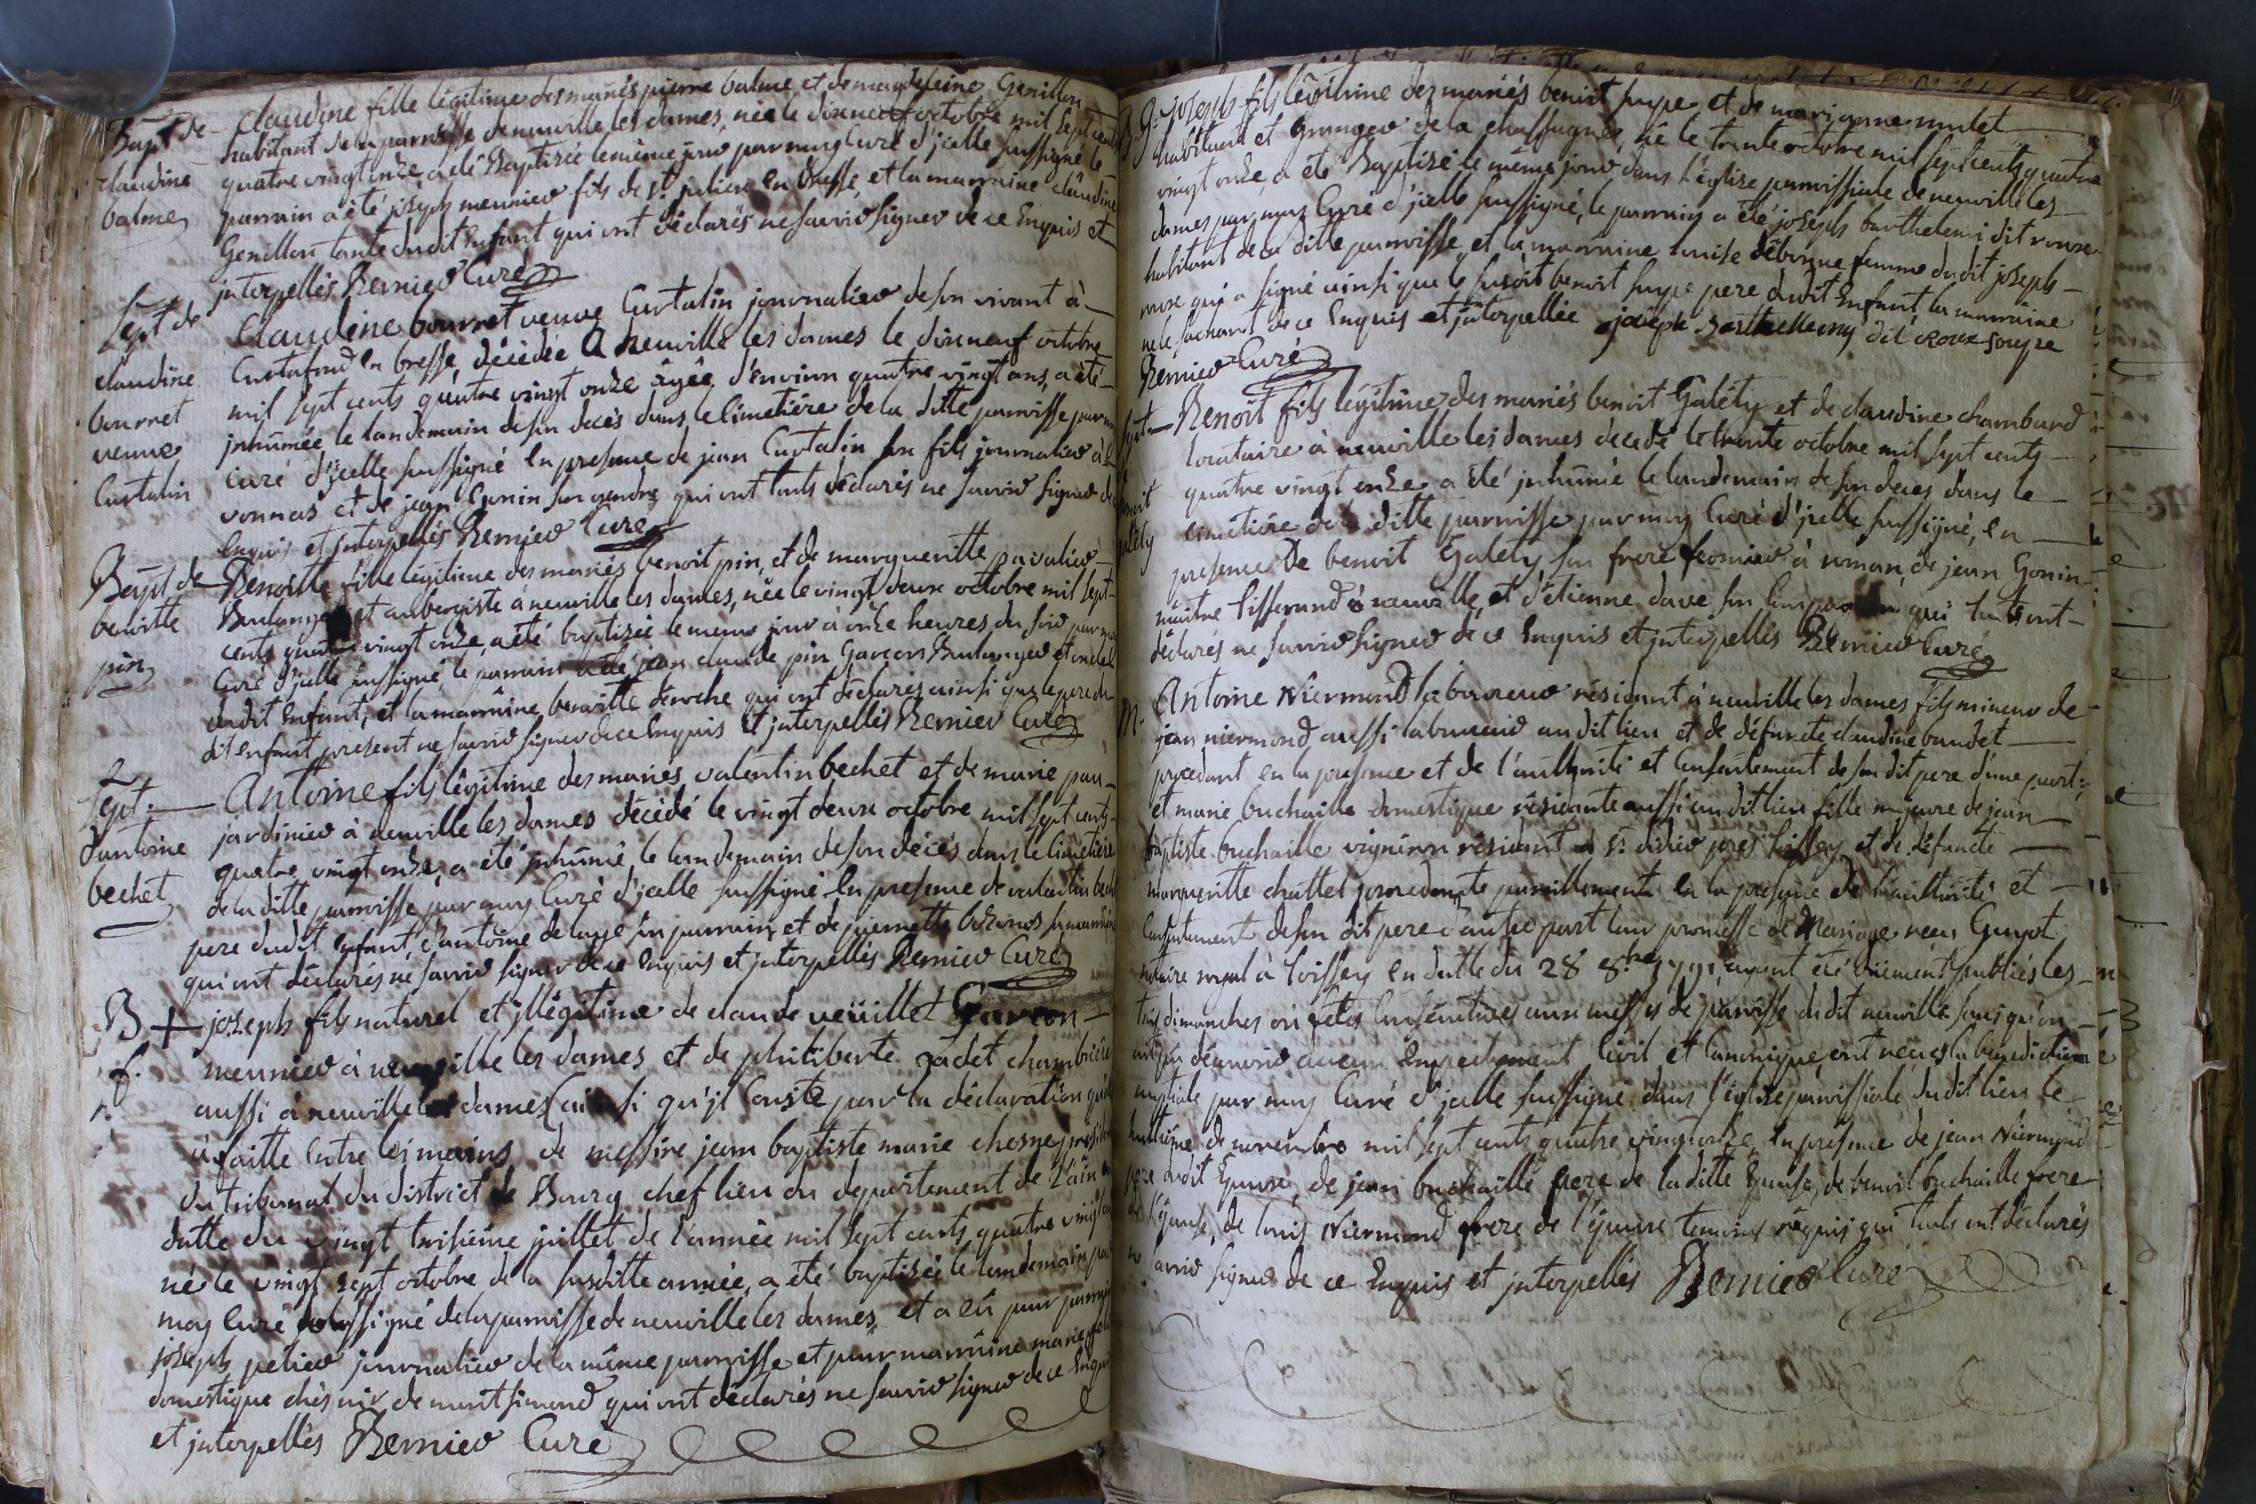 Bapt de
claudine
balme
claudine fille légitime des mariés pierre balme et de magdeleine Genillon
habitant de la parroisse de neuville les dames, née le dixneuf octobre mil sept cents
quatre vingt onze, a été Baptisée le même jour par moy Curé d'jcelle sussigné le
parrain a été joseph meunier fils de st julien en Bresse, et la marraine claudine
Genillon tante dudit Enfant qui ont déclarés ne savoir signer de ce Enquis et
jnterpellés Bernier Curé
Sept de
claudine
bourret
veuve
Curtalin
Claudine bourret veuve Curtalin journalier de son vivant à
Crotafond en bresse, décédée a neuville les dames le dixneuf octobre
mil sept cents quatre vingt onze âgée d'environ quatre vingt ans, a été
jnhumée le landemain de son decès dans le Cimetière de la ditte parroisse par
curé d'jcelle sussigné En presence de jean Curtalin son fils journalier à
vonnas et de jean Gonin son gendre qui ont touts déclarés ne savoir signer de
Enquis et jnterpellés Bernier Curé
Bapt de
benoitte
pin
Benoitte fille légitime des mariés benoit pin, et de margueritte pavalier
Boulanger et aubergiste à neuville les dames, née le vingt deux octobre mil sept
cents quatre vingt onze, a été baptisée le meme jour à onze heures du soir par
Curé d'jcelle sussigné, le parrain a été jean claude pin Garcon Boulanger et oncle
dudit Enfant, et la marraine benoitte deroche qui ont déclarés ainsi que le pere du
dit Enfant present ne savoir signer de ce Enquis et jnterpellés Bernier Curé
Sept
d'antoine
bechet
Antoine fils légitime des mariés valentin bechet et de marie
jardinier à neuville les dames décédé le vingt deux octobre mil sept cents
quatre vingt onze, a été jnhumé le landemain de son décès dans le Cimetière
de la ditte parroisse, par moy Curé d'jcelle sussigné En presence de valentin
pere dudit Enfant, d'antoine delaye son parrain, et de pierrette sa marraine
qui ont déclarés ne savoir signer de ce Enquis et jnterpellés Bernier Curé
B +
joseph fils naturel et jllégitime de claude veüillet Garcon
meunier à neuville les dames et de philiberte zadet chambriere
aussi à neuville les dames (ainsi qu'jl Conste par la déclaration
a faitte Entre les mains de messire jean baptiste marie chesne
du tribunat du district de Bourg chef lieu du departement de L'ain
datte du vingt troisieme juillet de l'année mil sept cents quatre vingt
né le vingt sept octobre de la susditte année, a été baptisée le landemain par
moy Curé soussigné de la parroisse de neuville les dames, et a eû pour parrain
joseph petier journalier de la même parroisse et pour marraine marie
domestique chès mr de mont simond qui ont déclarés ne savoir signer de ce Enquis
et jnterpellés Bernier Curé
joseph fils légitime des mariés benoit supe et de marianne mulet
habitant et Granger de la chassagne, né le trente octobre mil sept cents quatre
vingt onze, a été Baptisé le même jour dans l'église parroissiale de neuville les
dames par moy Curé d'jcelle sussigné, le parrain a été joseph barthelemi dit
habitant de la ditte parroisse, et la marraine louise débonne femme dudit joseph
qui a signé ainsi que le susdit benoit supe pere dudit Enfant, la marraine
ne le sachant de ce Enquis et jnterpellée joseph Barthellemy dit Roux soupe
Bernier Curé
Sept
Benoit fils légitime des mariés benoit Galéty et de claudine chambard
locataire à neuville les dames decedé le trente octobre mil sept cents
quatre vingt onze, a été jnhumé le landemain de son deces dans le
cimetière de la ditte parroisse par moy Curé d'jcelle sussigné, en
presence de benoit Galety son frere à roman, de jean Gonin
maitre tisserand à neuville, et d'étienne dave son parrain qui touts ont
déclarés ne savoir signer de ce Enquis et jnterpellés Bernier Curé
M.
Antoine Niermond laboureur résidant à neuville les dames fils mineur de
jean niermond aussi laboureur audit lieu et de défuncte claudine baudet
procédant en la presence et de l'authorité et Consentement de son dit pere d'une part;
et marie buchaille domestique résidante aussi audit lieu fille majeure de jean
baptiste buchaille vigneron résidant à st didier pres toissey et de défuncte
margueritte chattet procedante pareillement en la presence de l'authorité et
Consentement de son dit pere d'autre part leur promesse de Mariage recue Guyot
notaire royal à toissey en datte du 28 8bre 1791 ayant été düement publiés les
trois dimanches ou fetes Consécutives aux messes de parroisse dudit neuville sans qu'on
ait pu découvrir aucun Empechement Civil et Canonique, ont recus la benediction
nuptiale par moy Curé d'jcelle sussigné dans l'église parroissiale dudit lieu le
huitième de novembre mil sept cents quatre vingt onze, En presence de jean Niermond
pere dudit Epoux, de jean buchaille pere de la ditte Epouse, de benoit buchaille frere
de l'Epouse, de louis Niermond frere de l'Epoux temoins réquis qui touts ont déclarés
savoir signer de ce Enquis et jnterpellés Bernier Curé